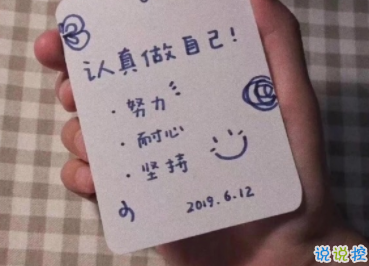 认真做自己!
·努力
·耐心
·坚持
2019.6.12
说说控